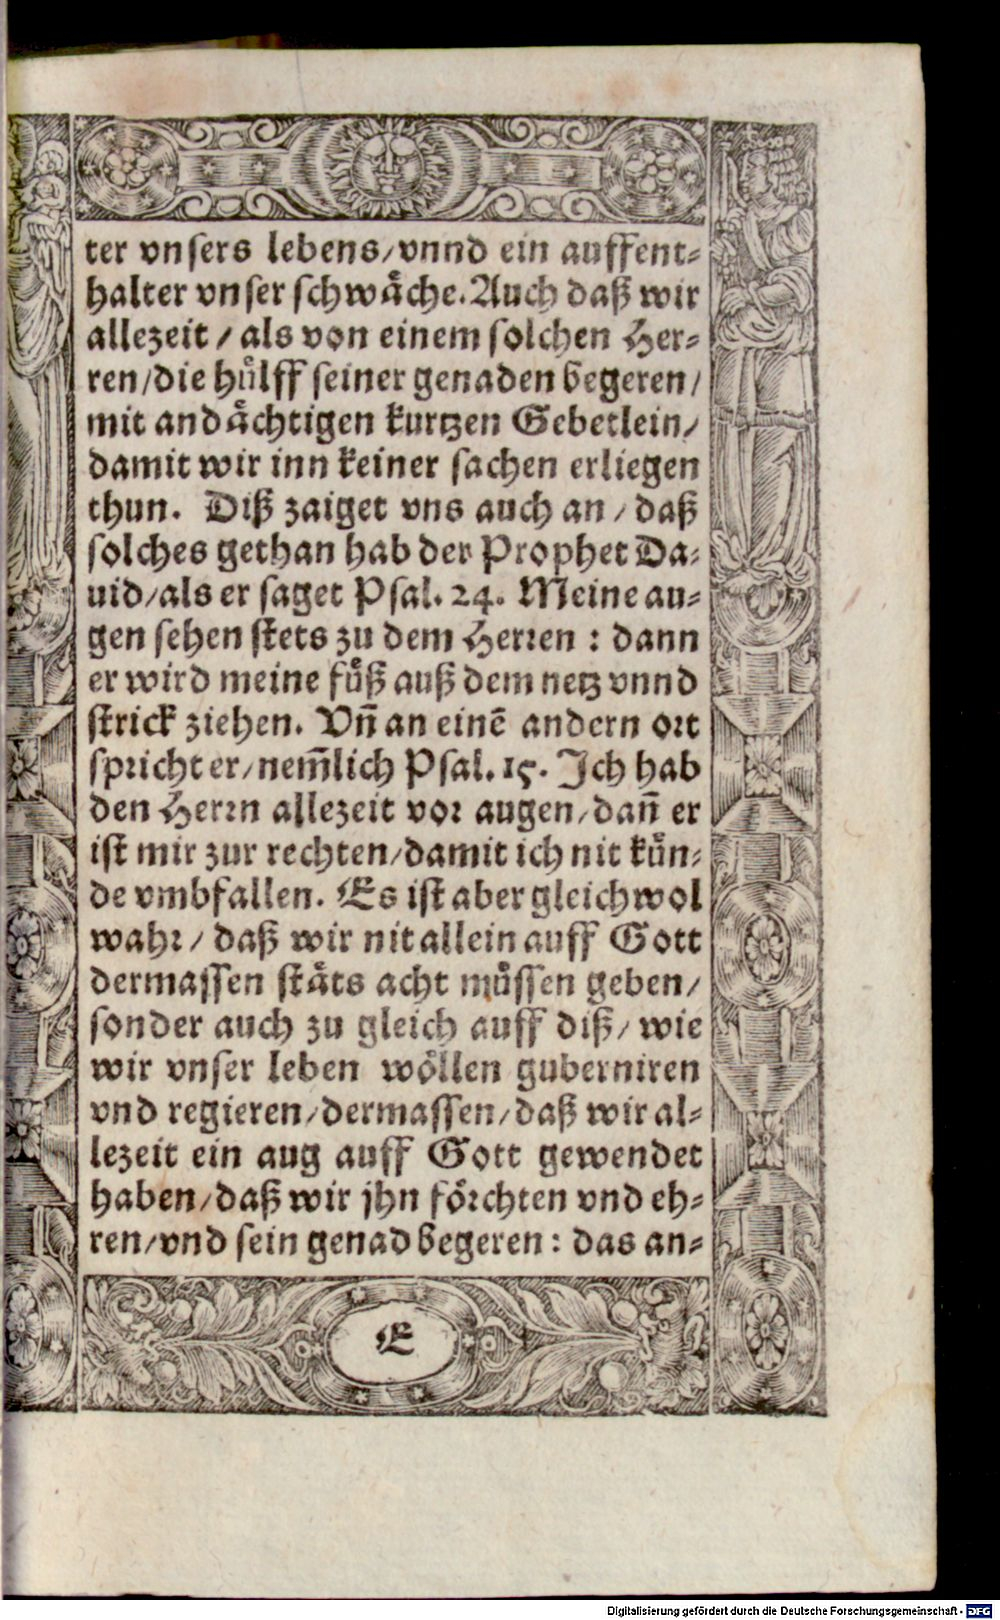 ter vnsers lebens/vnnd ein auffent⸗
halter vnser schwäche. Auch daß wir
allezeit / als von einem solchen Her⸗
ren/die hülff seiner genaden begeren/
mit andächtigen kurtzen Gebetlein/
damit wir inn keiner sachen erliegen
thun. Diß zaiget vns auch an / daß
solches gethan hab der Prophet Da⸗
uid/als er saget Psal. 24. Meine au⸗
gen sehen stets zu dem Herren : dann
er wird meine füß auß dem netz vnnd
strick ziehen. Vñ an einē andern ort
spricht er/nem̃lich Psal. 15. Ich hab
den Herrn allezeit vor augen/dañ er
ist mir zur rechten/damit ich nit kün⸗
de vmbfallen. Es ist aber gleichwol
wahr/ daß wir nit allein auff Gott
dermassen stäts acht müssen geben/
sonder auch zu gleich auff diß/ wie
wir vnser leben wöllen guberniren
vnd regieren/dermassen/daß wir al⸗
lezeit ein aug auff Gott gewendet
haben/daß wir jhn förchten vnd eh⸗
ren/vnd sein genad begeren : das an⸗
E
Digitalisierung gefördert durch die Deutsche Forschungsgemeinschaft - DFG